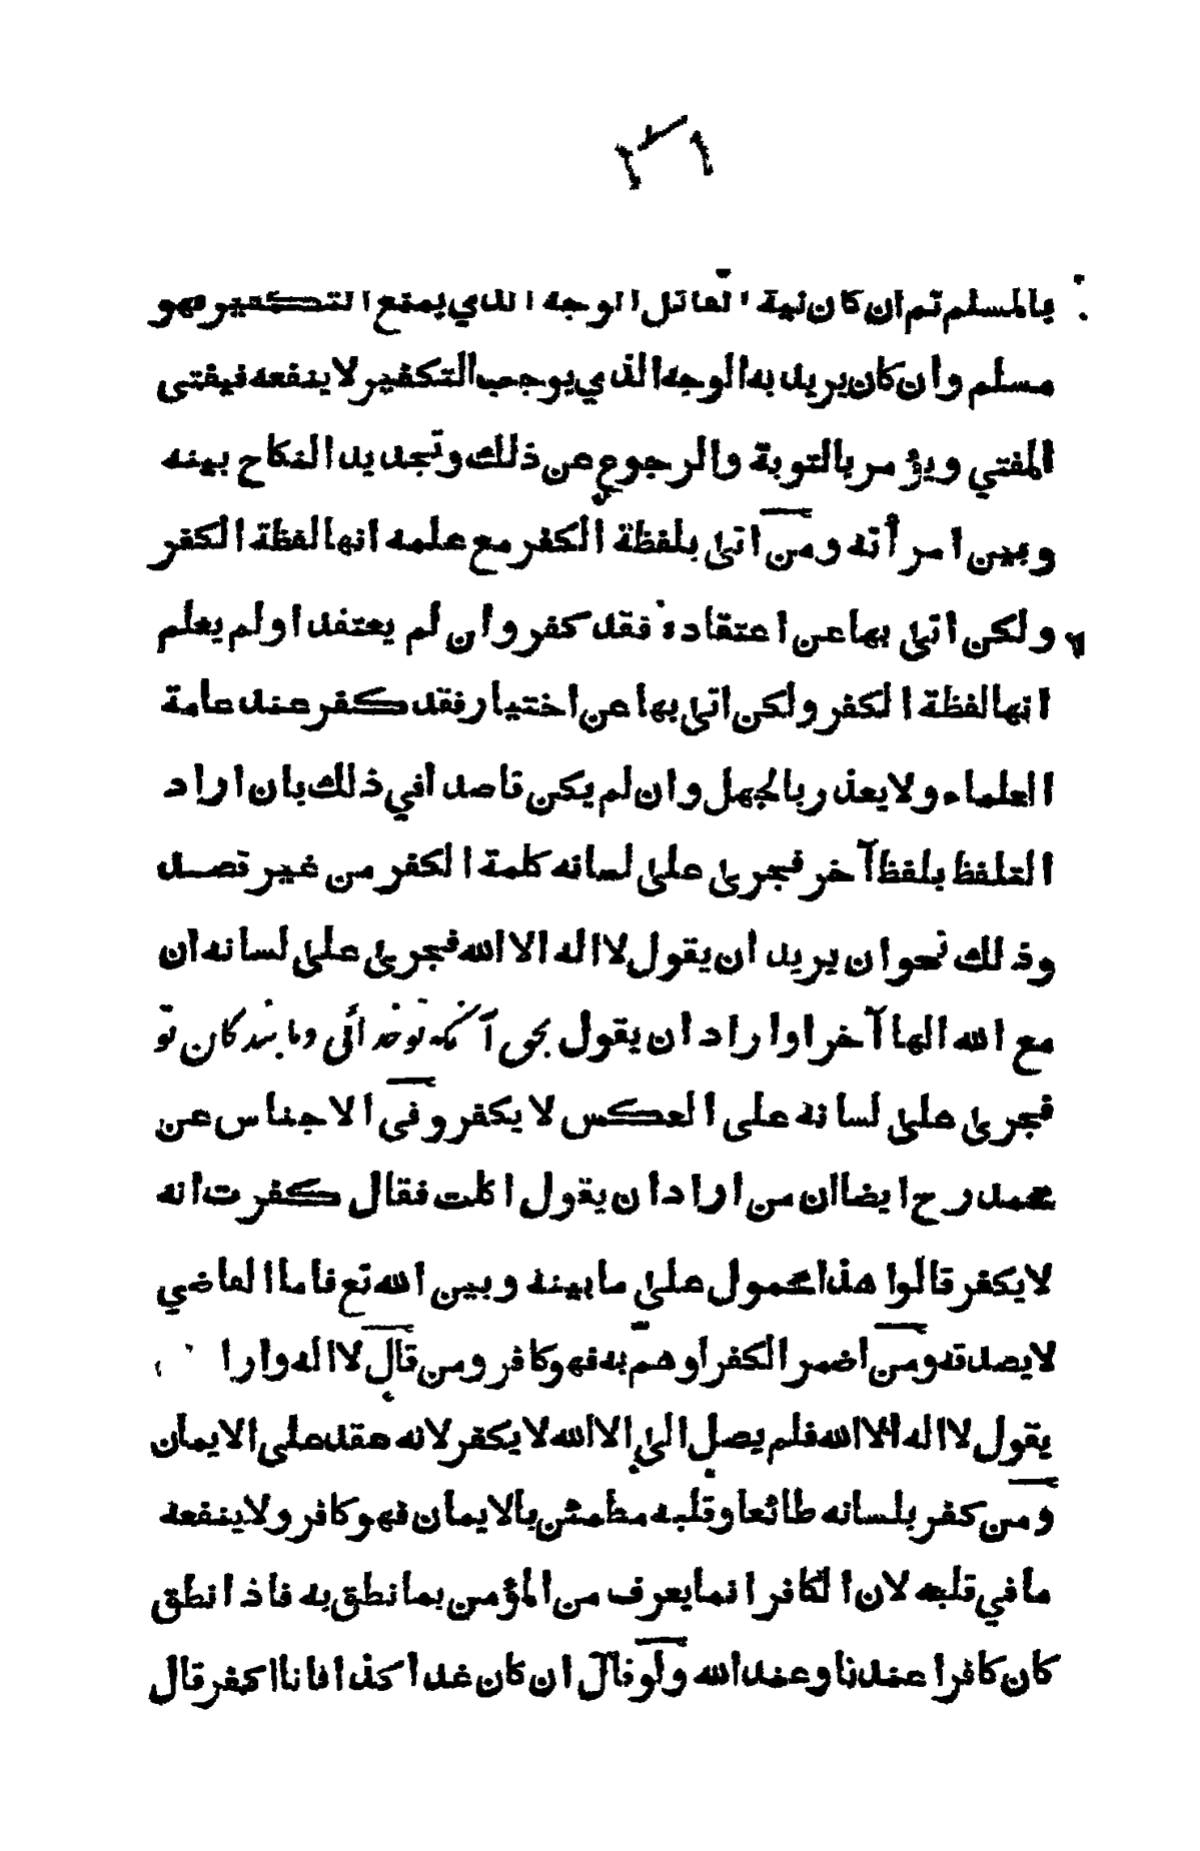 بالمسلم ثم ان كان نية القائل الوجه الذي يمنع التكفير فهو
مسلم وان كان يريد به الوجه الذي يوجب التكفير لا ينفعه فيفتى
المفتي ويؤمر بالتوبة والرجوع عن ذلك وتجديد النكاح بينه
وبين امرأته ومن اتىٰ بلفظة الكفر مع علمه انها لفظة الكفر
ولكن اتىٰ بها عن اعتقاده فقد كفر وان لم يعتقد اولم يعلم
انها لفظة الكفر ولكن اتىٰ بها عن اختيار فقد كفر عند عامة
العلماء ولا يعذر بالجهل وان لم يكن قاصدا في ذلك بان اراد
التلفظ بلفظ آخر فجرىٰ علىٰ لسانه كلمة الكفر من غير قصد
وذلك نحو ان يريد ان يقول لا اله الا الله فجرىٰ علىٰ لسانه ان
مع الله الها آخر او اراد ان يقول بحق آنکه تو خدائی وما بندگان تو
فجرىٰ علىٰ لسانه على العكس لا يكفر وفى الاجناس عن
محمد رح ايضا ان من اراد ان يقول اكلت فقال كفرت انه
لا يكفر قالوا هذا محمول علىٰ ما بينه وبين الله تع فاما القاضي
لا يصدقه ومن اضمر الكفر او همّ به فهو كافر ومن قال لا اله واراد
يقول لا اله الا الله فلم يصل الىٰ الا الله لا يكفر لانه عقد على الايمان
ومن كفر بلسانه طائعا وقلبه مطمئن بالايمان فهو كافر ولا ينفعه
ما في قلبه لان الكافر انما يعرف من المؤمن بما نطق به فاذا نطق
كان كافرا عندنا وعند الله ولو قال ان كان غدا كذا فانا اكفر قال